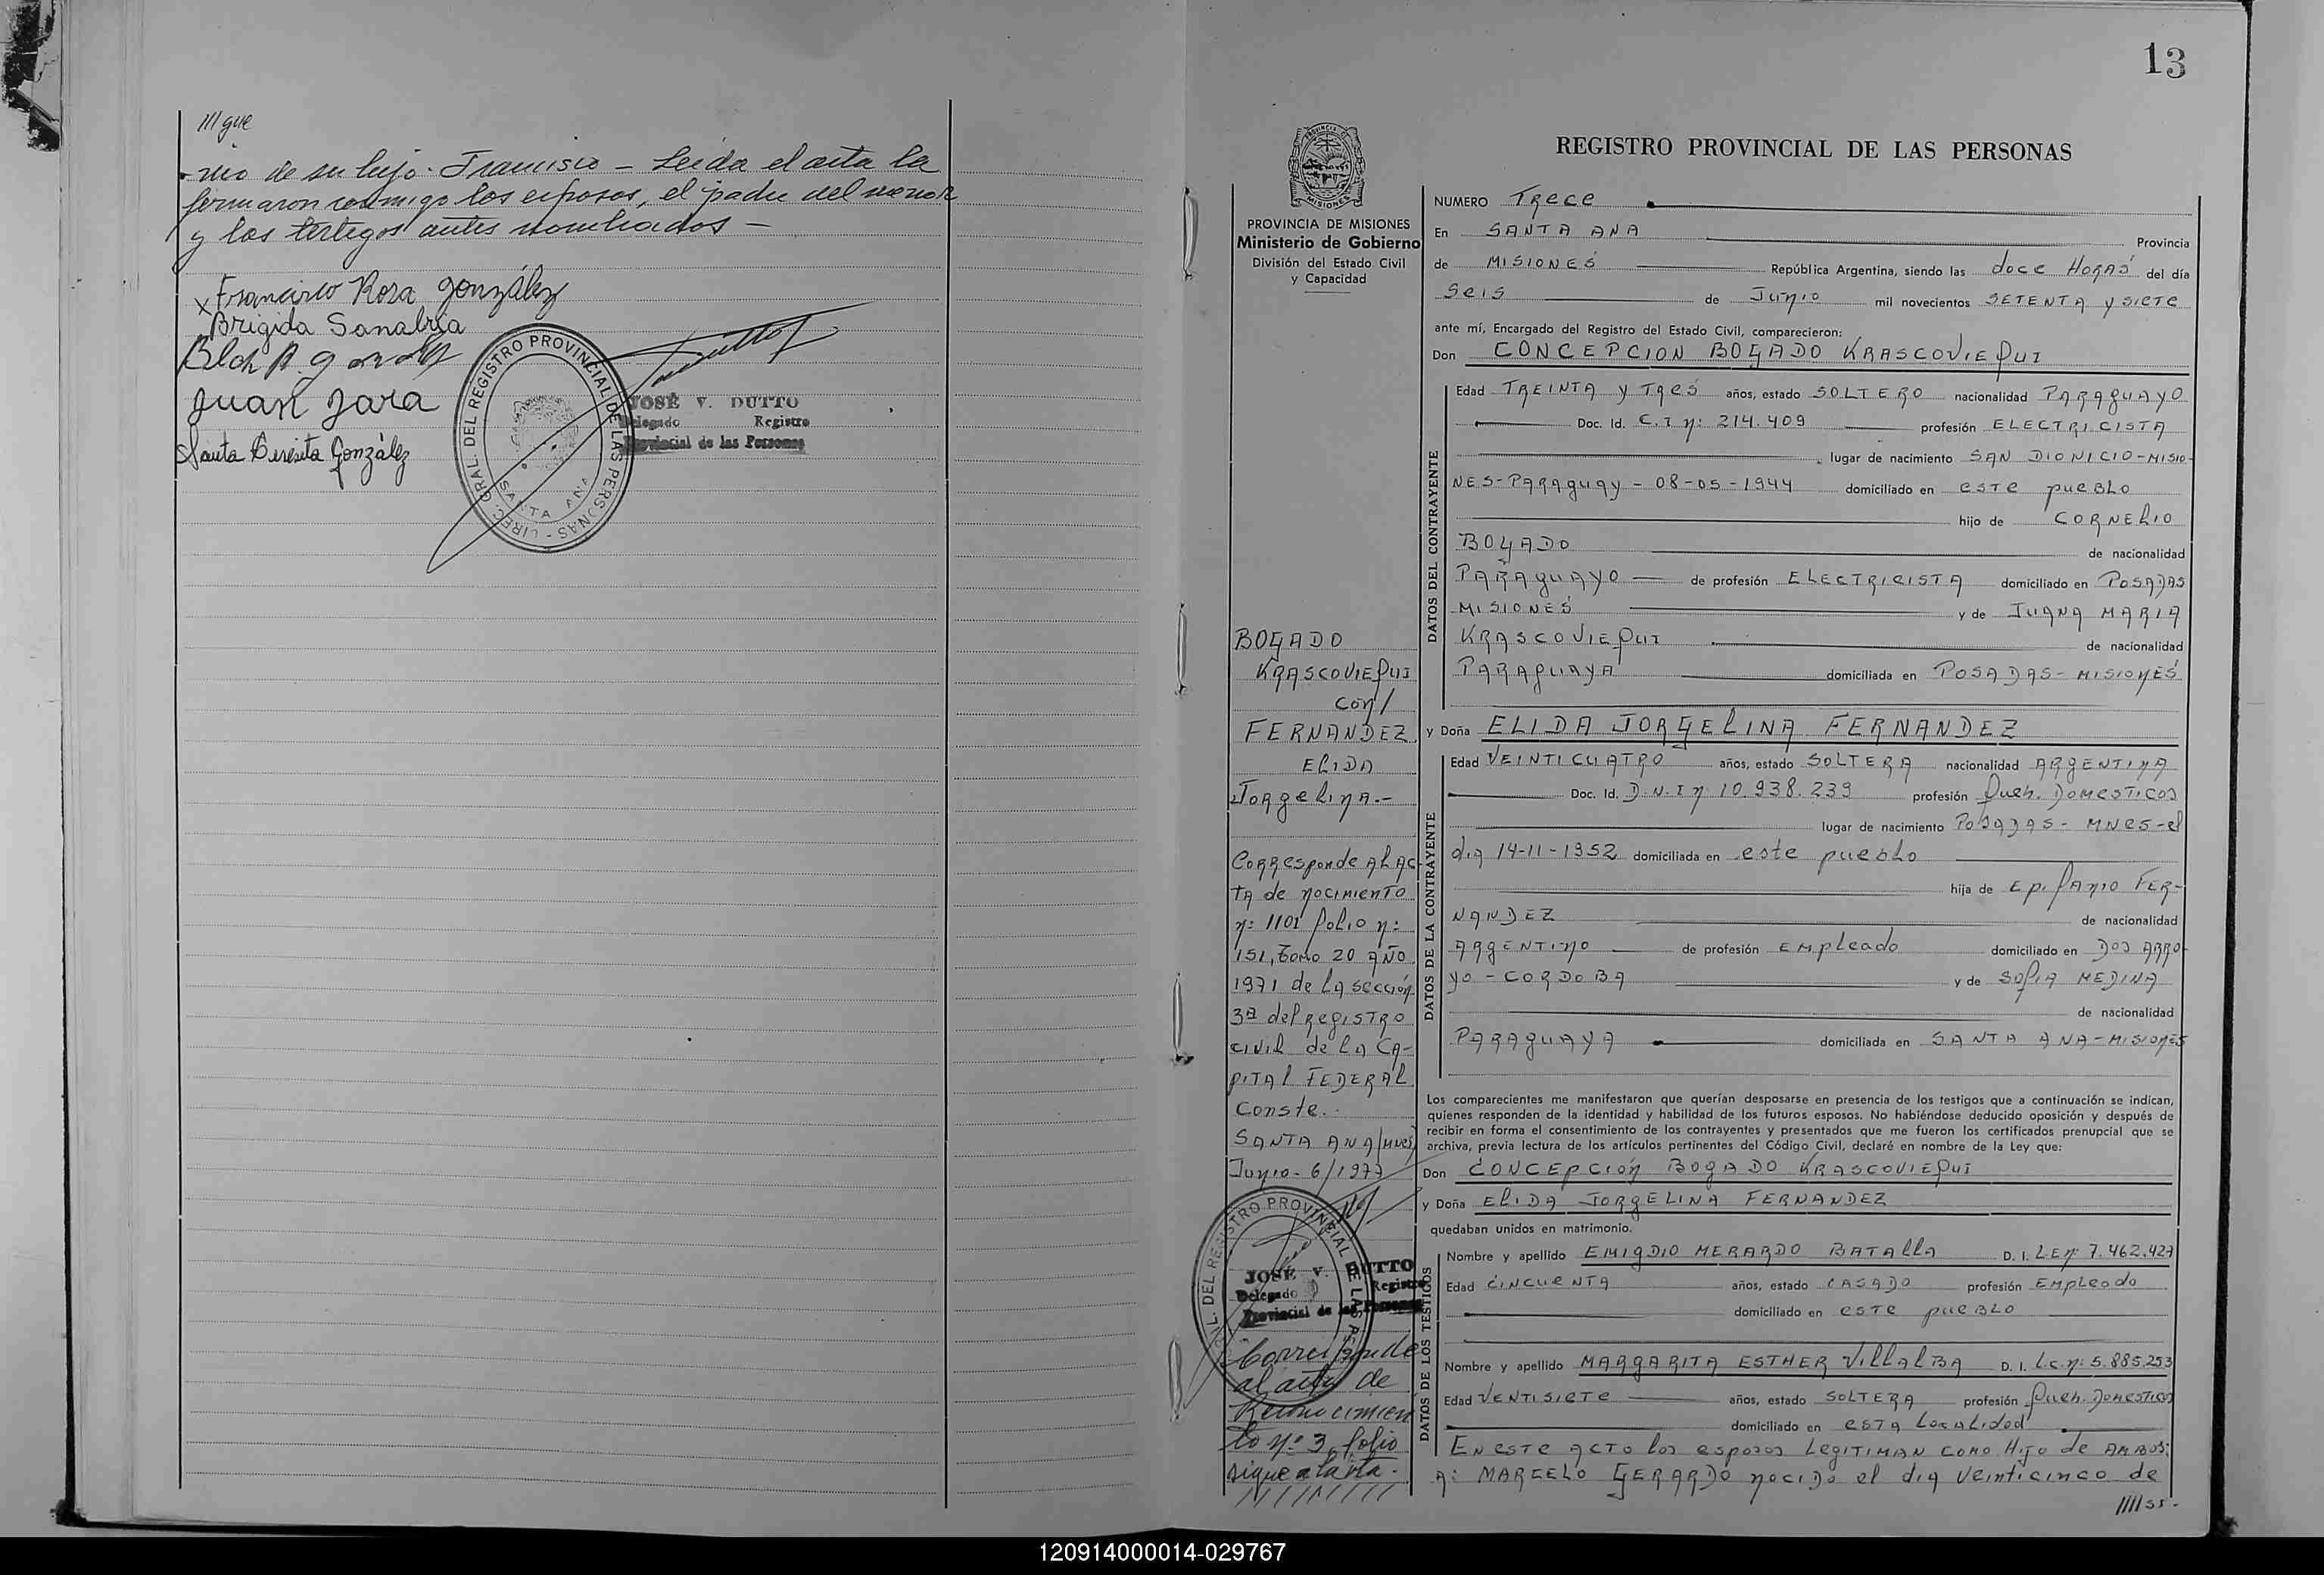 /// que
nio de su hijo. Francisco - Leída el acta la
firmaron conmigo los esposos, el padre del menor
y los testigos antes nombrados -
x Francisco Rosa González
Brigida Sanabria
Juan Jara
Santa Teresita González
DIREC. GRAL. DEL REGISTRO PROVINCIAL DE LAS PERSONAS -
SANTA ANA
JOSÉ V. DUTTO
Delegado Registro
Provincial de las Personas
13
PROVINCIA DE MISIONES
Ministerio de Gobierno
División del Estado Civil
y Capacidad
BOGADO
KRASCOVIEfQUI
con/
FERNANDEZ
ELIDA
Jorgelina.-
Corresponde al Ac
ta de nacimiento
nº: 1101 folio nº:
151, tomo 20 año
1971 de la sección
3ª del registro
civil de la Ca-
pital FEDERAL
Conste.
SANTA ANA (Mnes)
Junio - 6/1977
JOSÉ V. DUTTO
Delegado Registro
Provincial de las Personas
Corresponde
al acta de
Reconocimien
to nº 3, folio
sigue a la vta.
REGISTRO PROVINCIAL DE LAS PERSONAS
NUMERO Trece
En SANTA ANA Provincia
de MISIONES República Argentina, siendo las doce Horas del día
Seis de Junio mil novecientos SETENTA y siete
ante mí, Encargado del Registro del Estado Civil, comparecieron:
Don CONCEPCION BOGADO KRASCOVIEfQUI
DATOS DEL CONTRAYENTE
Edad TREINTA y Tres años, estado SOLTERO nacionalidad PARAguAyO
Doc. Id. C.I nº: 214.409 profesión ELECTRICISTA
lugar de nacimiento SAN DIONICIO - MISIO-
NES - PARAguay - 08-05-1944 domiciliado en este pueblo
hijo de CORNELIO
BOGADO de nacionalidad
PARAguAYO de profesión ELECTRICISTA domiciliado en POSADAS
MISIONES y de JUANA MARIA
KRASCOVIEfQUI de nacionalidad
PARAguAyA domiciliada en POSADAS - MISIONES
y Doña ELIDA JORGELINA FERNANDEZ
DATOS DE LA CONTRAYENTE
Edad VEINTICUATRO años, estado SOLTERA nacionalidad ARgENTINA
Doc. Id. D.N.I nº 10.938.239 profesión Queh. DOMESTICOS
lugar de nacimiento POSADAS - MNES - el
dia 14-11-1952 domiciliada en este pueblo
hija de Epifanio FER-
NANDEZ de nacionalidad
ARgENTINO de profesión Empleado domiciliado en Dos ARRO-
yo - CORDOBA y de Sofia MEDINA
de nacionalidad
PARAguAyA domiciliada en SANTA ANA - MISIONES
Los comparecientes me manifestaron que querían desposarse en presencia de los testigos que a continuación se indican,
quienes responden de la identidad y habilidad de los futuros esposos. No habiéndose deducido oposición y después de
recibir en forma el consentimiento de los contrayentes y presentados que me fueron los certificados prenupcial que se
archiva, previa lectura de los artículos pertinentes del Código Civil, declaré en nombre de la Ley que:
Don CONCEpción BOgADO KRASCOVIEfQUI
y Doña ELIDA JORgELINA FERNANDEZ
quedaban unidos en matrimonio.
DATOS DE LOS TESTIGOS
Nombre y apellido EMIGDIO MERARDO BATALLA D. I. L.E nº: 7.462.427
Edad CINCUENTA años, estado CASADO profesión Empleado
domiciliado en este pueBLO
Nombre y apellido MARGARITA ESTHER VILLALBA D. I. L.c. nº: 5.885.253
Edad VENTISIETE años, estado SOLTERA profesión Queh. DOMESTICOS
domiciliado en esta Localidad
En este acto los esposos Legitiman como Hijo de AMBOS:
A: MARCELO GERARDO nacido el dia veinticinco de
120914000014-029767